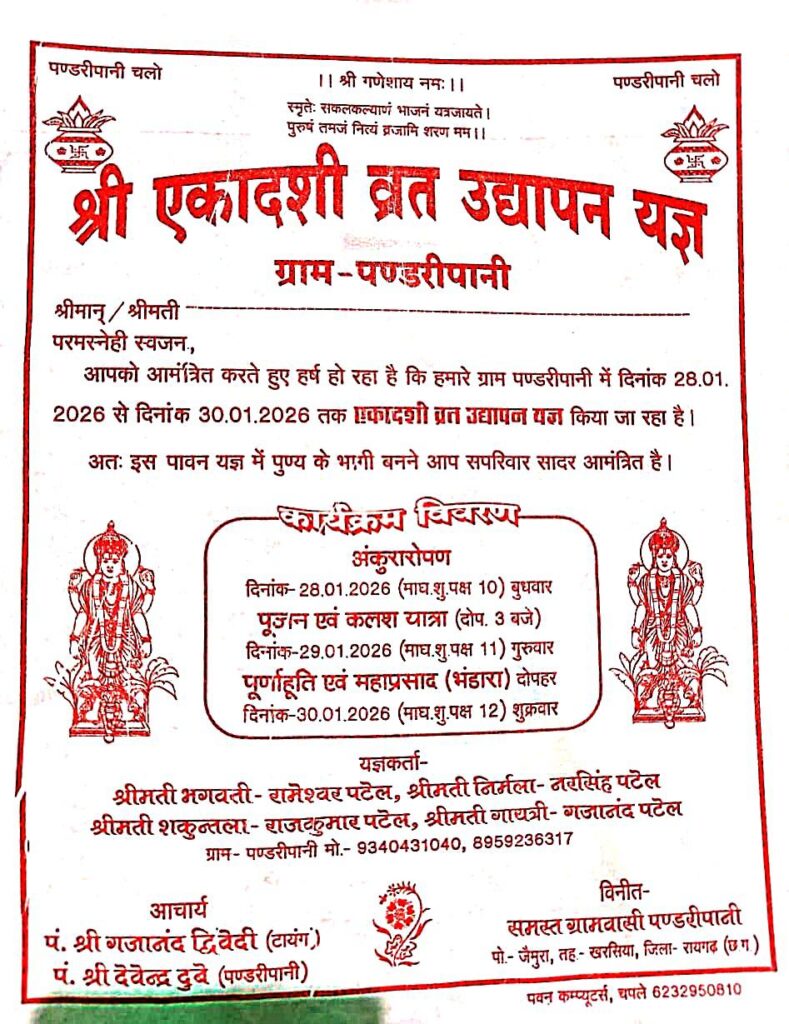 पण्डरीपानी चलो
।। श्री गणेशाय नमः।।
पण्डरीपानी चलो
स्मृतेः सकलकल्याणं भाजनं यत्रजायते।
पुरुषं तमजं नित्यं व्रजामि शरण मम।।
श्री एकादशी व्रत उद्यापन यज्ञ
ग्राम-पण्डरीपानी
श्रीमान्/श्रीमती
परमस्नेही स्वजन,
आपको आमंत्रित करते हुए हर्ष हो रहा है कि हमारे ग्राम पण्डरीपानी में दिनांक 28.01.
2026 से दिनांक 30.01.2026 तक एकादशी व्रत उद्यापन यज्ञ किया जा रहा है।
अतः इस पावन यज्ञ में पुण्य के भागी बनने आप सपरिवार सादर आमंत्रित है।
कार्यक्रम विवरण
अंकुरारोपण
दिनांक-28.01.2026 (माघ.शु.पक्ष 10) बुधवार
पूजन एवं कलश यात्रा (दोप. 3 बजे)
दिनांक-29.01.2026 (माघ.शु.पक्ष 11) गुरुवार
पूर्णाहूति एवं महाप्रसाद (भंडारा) दोपहर
दिनांक-30.01.2026 (माघ.शु.पक्ष 12) शुक्रवार
यज्ञकर्ता-
श्रीमती भगवती- रामेश्वर पटेल, श्रीमती निर्मला- नरसिंह पटेल
श्रीमती शकुन्तला- राजकुमार पटेल, श्रीमती गायत्री- गजानंद पटेल
ग्राम- पण्डरीपानी मो.- 9340431040, 8959236317
आचार्य
पं. श्री गजानंद द्विवेदी (टायंग)
पं. श्री देवेन्द्र दुबे (पण्डरीपानी)
विनीत-
समस्त ग्रामवासी पण्डरीपानी
पो.- जैमुरा, तह.- खरसिया, जिला- रायगढ़ (छ.ग.)
पवन कम्प्यूटर्स, चपले 6232950810